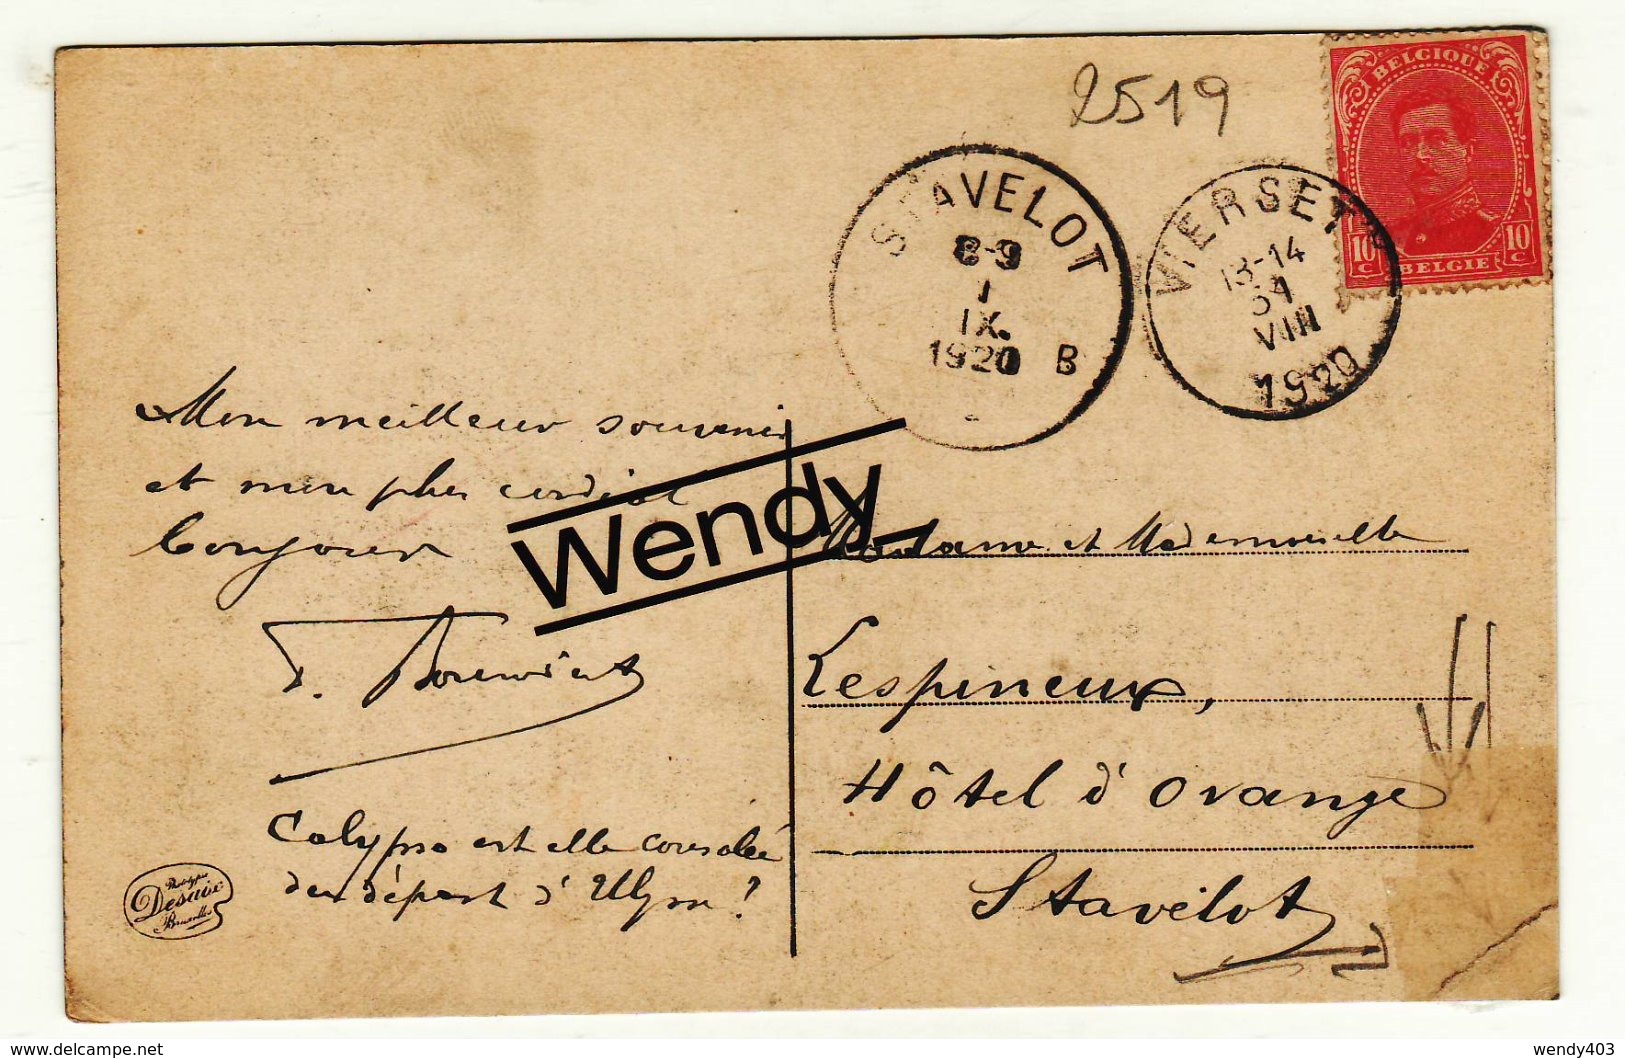 2519
BELGIQUE
10 C
10 C
BELGIE
STAVELOT
8-9
1
IX.
1920 B
VIERSET
13-14
31
VIII
1920
Mon meilleur souvenir
et mon plus cordial
bonjour
Wendy
Calypso est elle consolée
du départ d'Ulysse ?
Phototypie
Desaix
Bruxelles
Madame et Mademoiselle
Lespineux,
Hôtel d'Orange
Stavelot
www.delcampe.net
wendy403